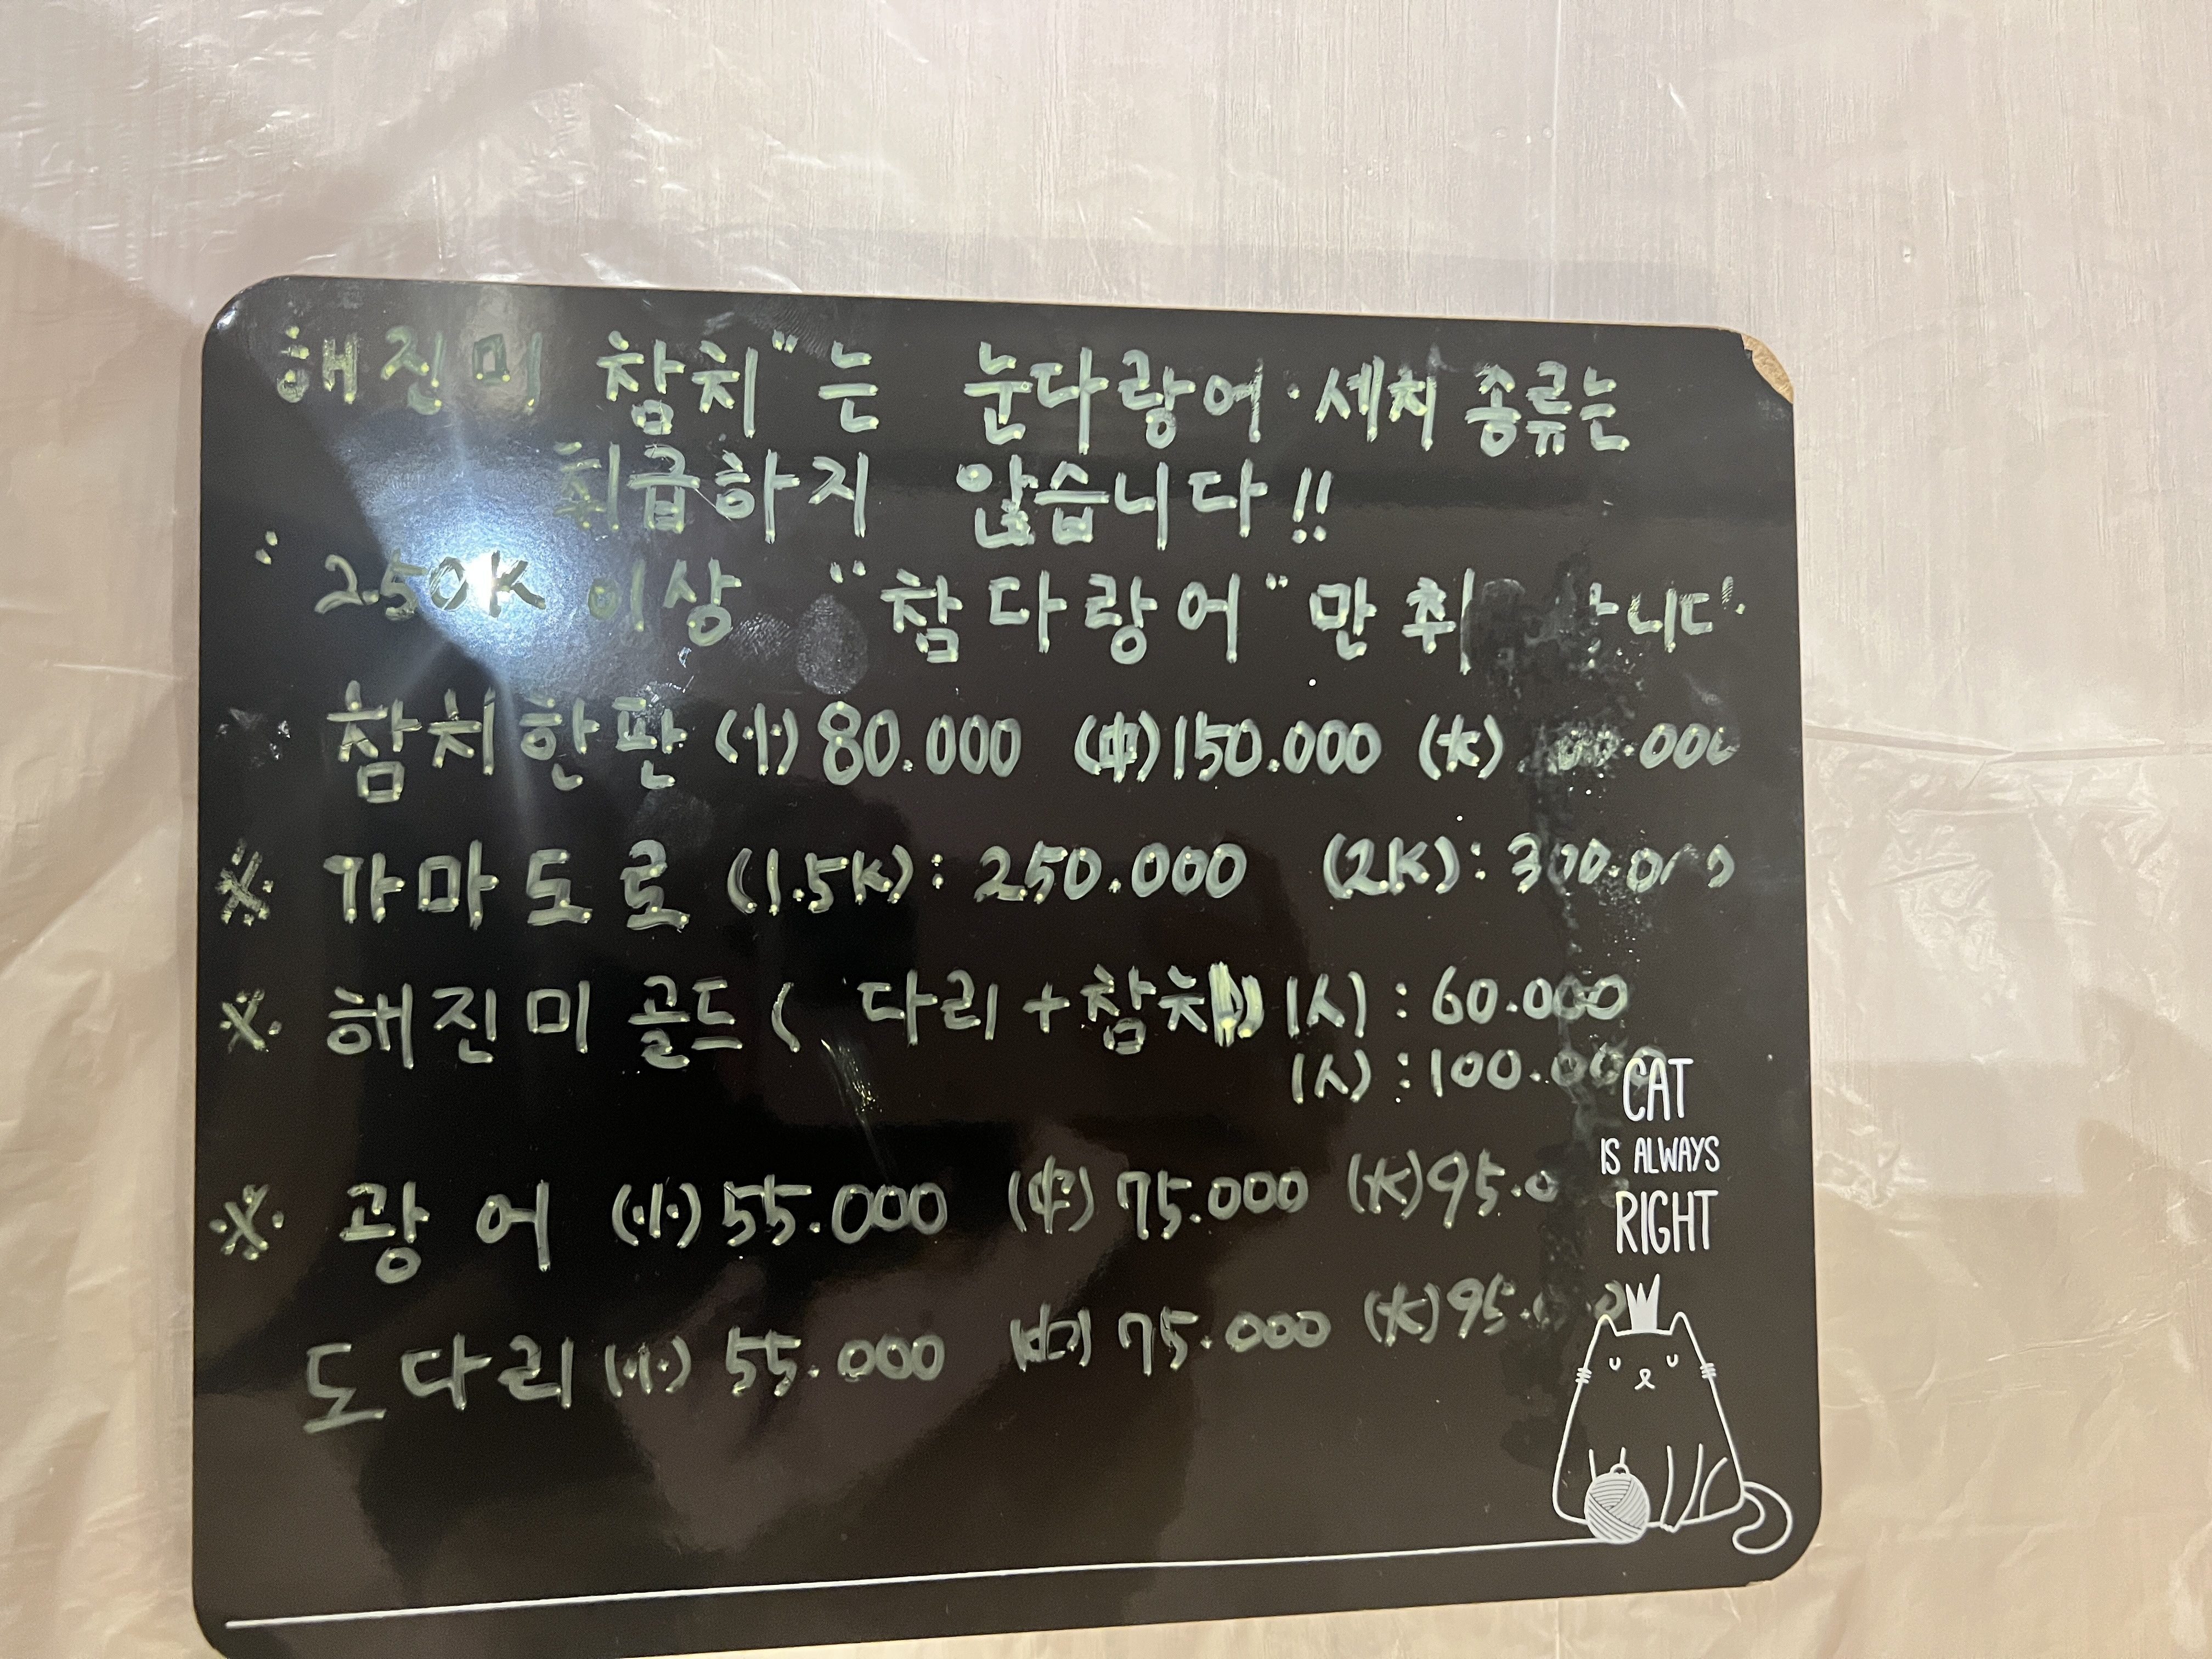 해진미 참치"는 눈다랑어·새치 종류는
취급하지 않습니다!!
250K 이상 "참다랑어"만
참치한판 (小) 80.000 (中) 150.000 (大)
※ 가마도로 (1.5K): 250.000 (2K): 300.000
※ 해진미 골드 ( 다리+참치) 1人) : 60.000
1人) : 100.000
※ 광어 (小) 55.000 (中) 75.000 (大)
도다리 (小) 55.000 (中) 75.000 (大)
CAT
IS ALWAYS
RIGHT